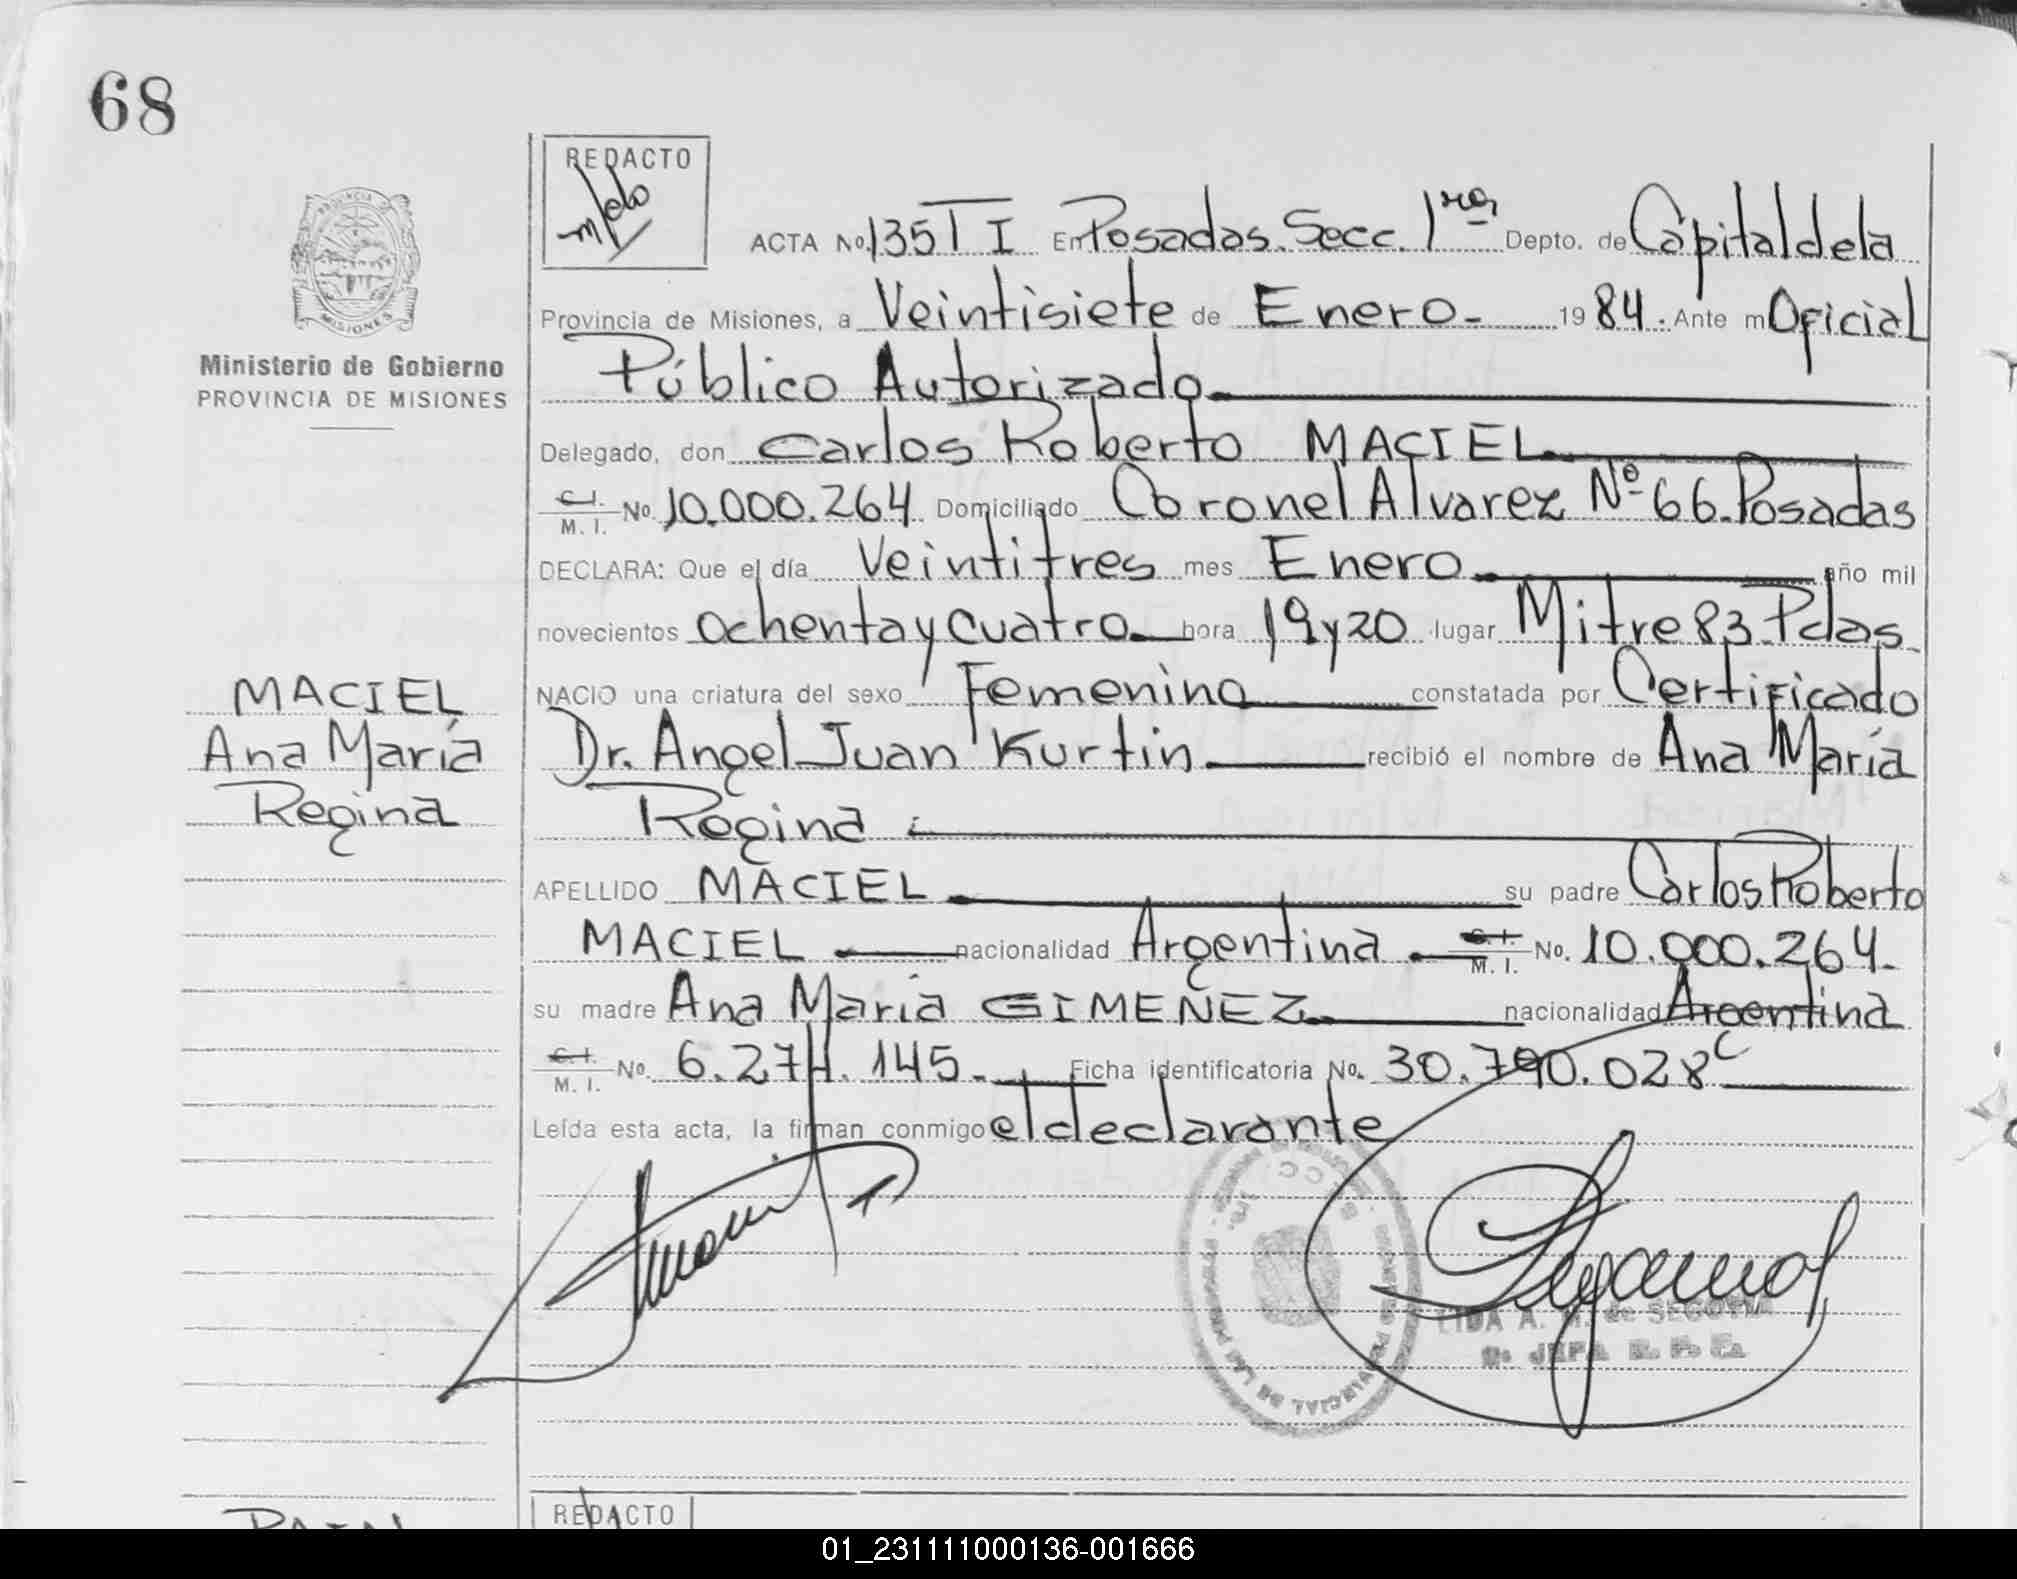 68
REDACTO
ACTA No. 135 T I En Posadas. Secc. 1ra Depto. de Capital de la
Provincia de Misiones, a Veintisiete de Enero - 19 84. Ante m Oficial
Ministerio de Gobierno
PROVINCIA DE MISIONES
Público Autorizado
Delegado, don Carlos Roberto MACIEL
C.I. M. I. No. 10.000.264 Domiciliado Coronel Alvarez Nº 66. Posadas
DECLARA: Que el día Veintitres mes Enero año mil
novecientos ochenta y cuatro hora 19 y 20 lugar Mitre 83. Pdas.
NACIO una criatura del sexo Femenino constatada por Certificado
Dr. Angel Juan Kurtin recibió el nombre de Ana María
Regina
MACIEL
Ana María
Regina
APELLIDO MACIEL su padre Carlos Roberto
MACIEL nacionalidad Argentina C.I. M. I. No. 10.000.264.
su madre Ana María GIMENEZ nacionalidad Argentina
C.I. M. I. No. 6.274.145. Ficha identificatoria No. 30.790.028 C
Leída esta acta, la firman conmigo el declarante
LIDA A. M. de SEGOVIA
REDACTO
01_231111000136-001666